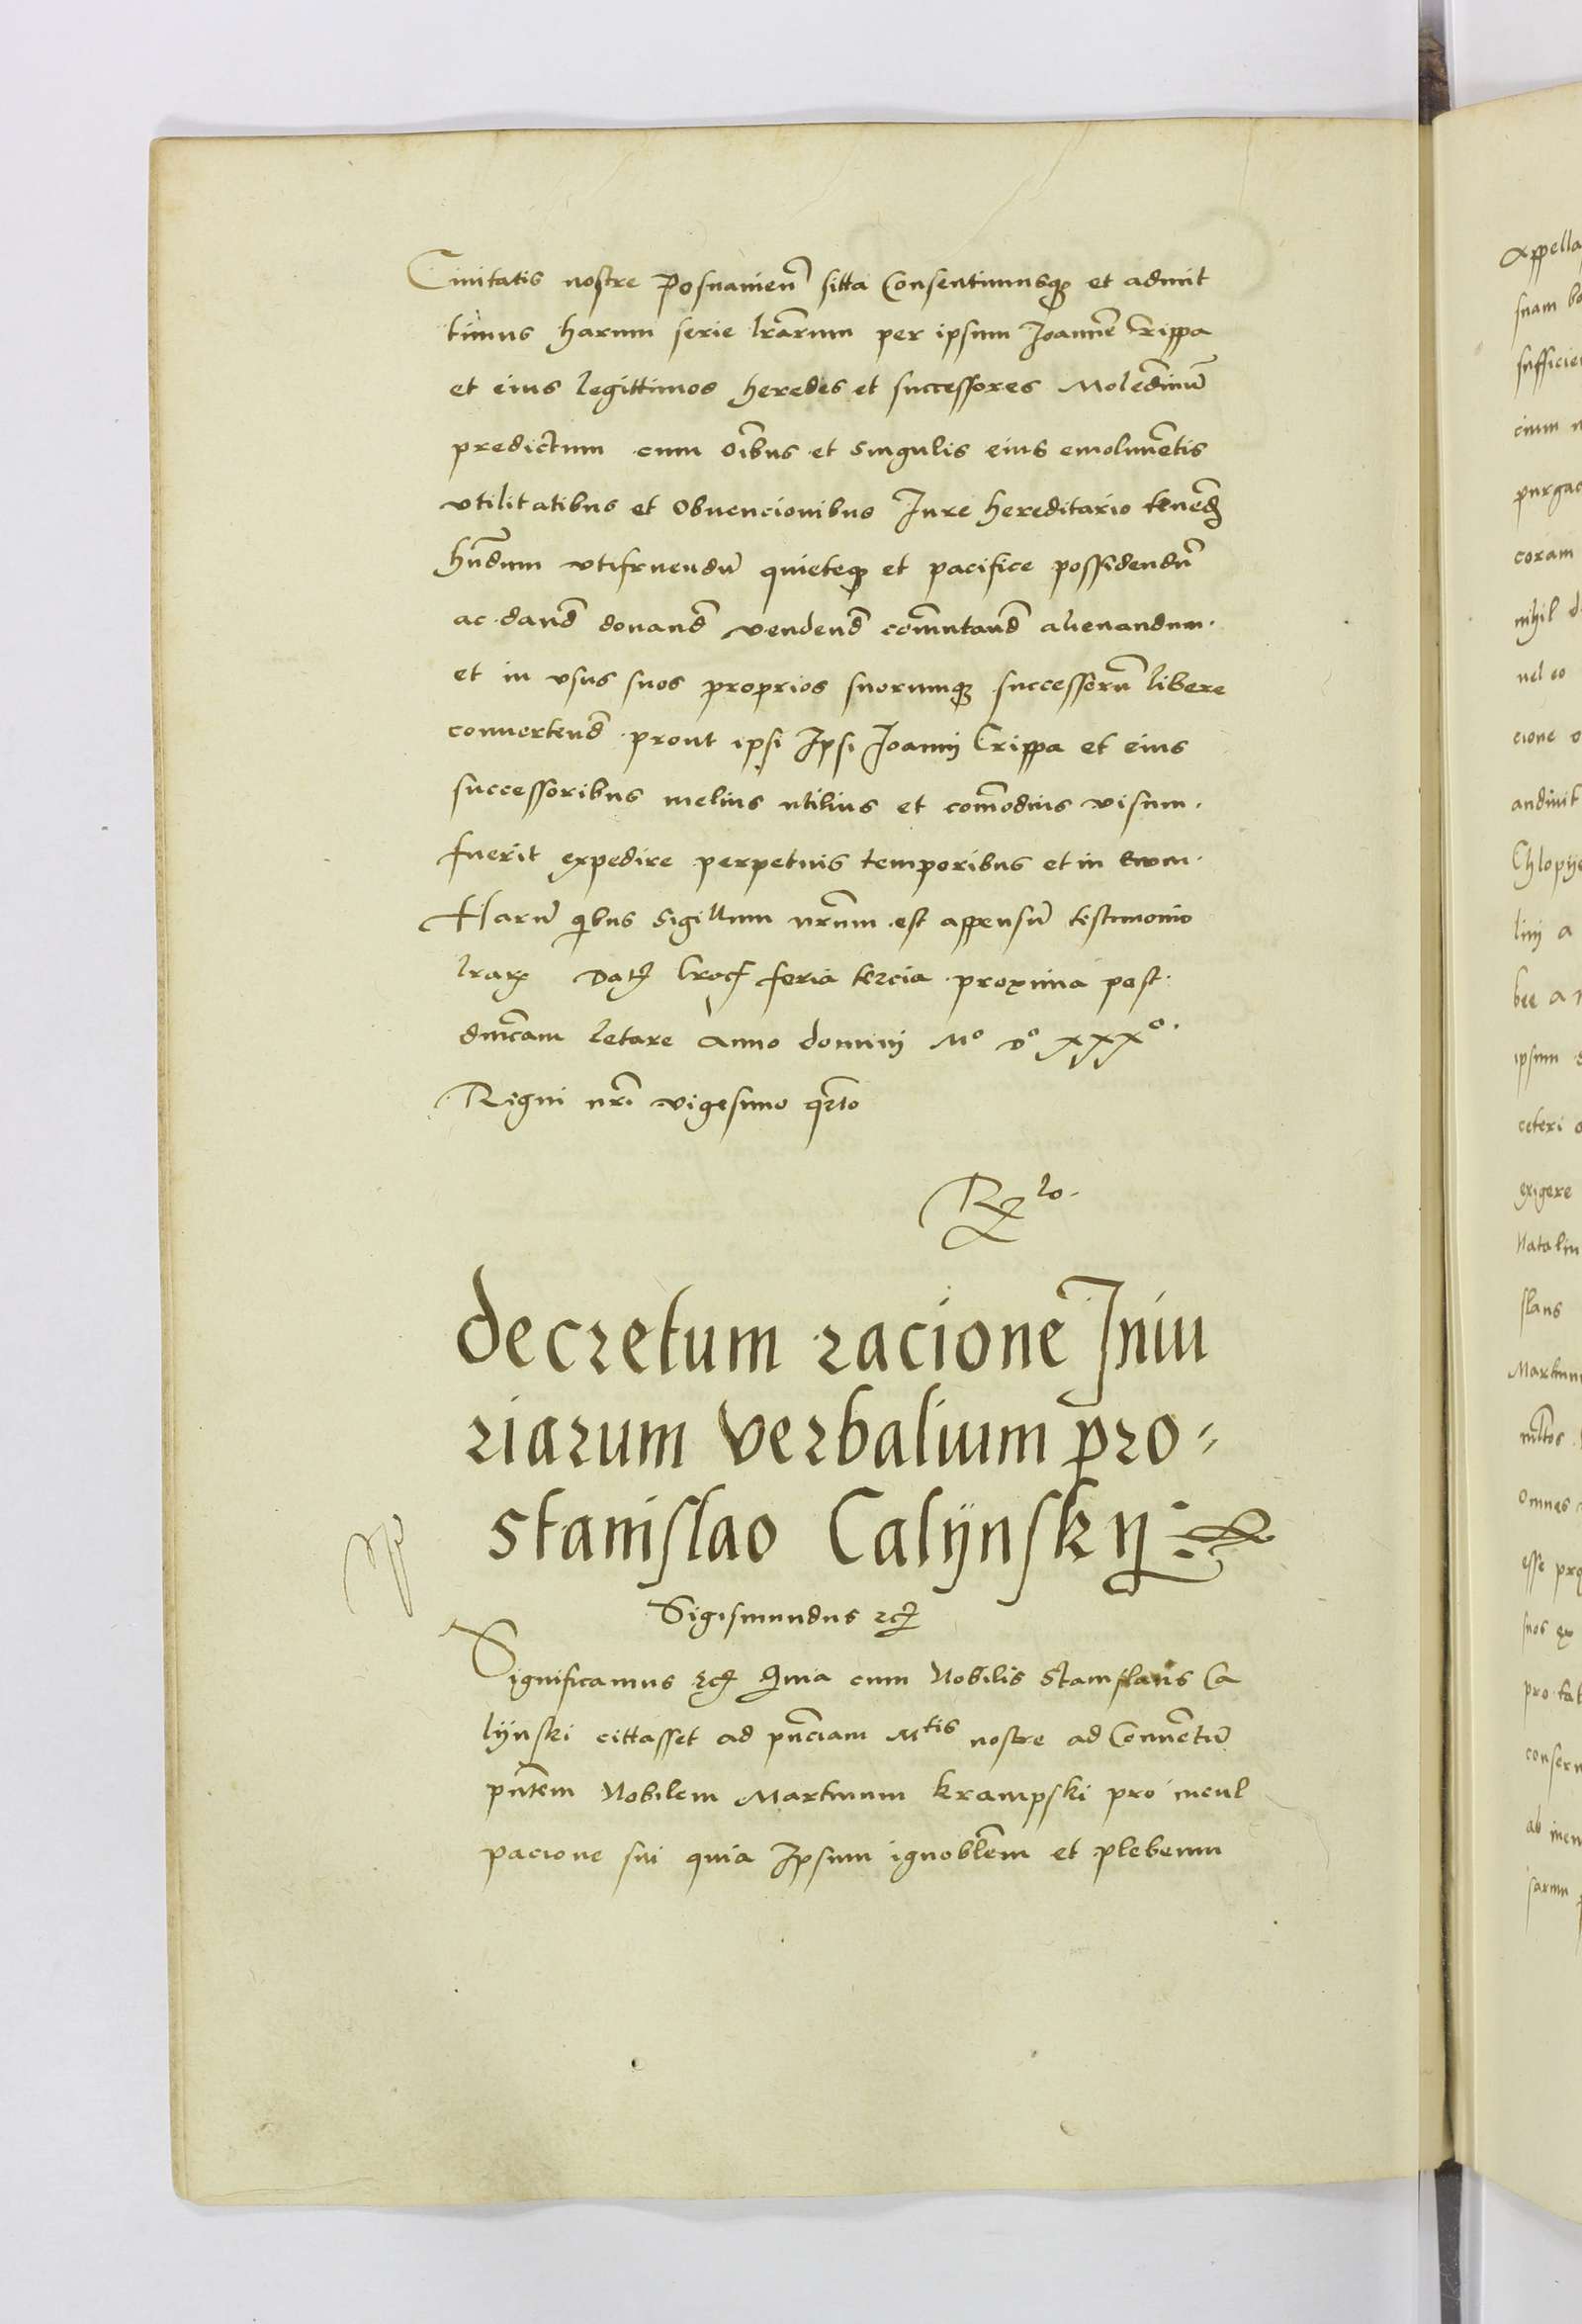 Ciuitatis nostre Posnanien̄ sitta Consentimusqꝫ et admit
timus harum serie lr̄arum per ipsum Joannē Crippa
et eius legittimos heredes et successores Molēdinū
predictum cum oībus et singulis eius emolumētis
vtilitatibus et Obuencionibus Jure hereditario tenēd
hn̄dum vtifruendū quieteqꝫ et pacifice possidendū
ac dand̄ donand̄ vendend̄ com̄utand̄ alienandum.
et in vsus suos proprios suorumqꝫ successorū libere
conuertend̄ prout ipsi Ipsi Joanni Crippa et eius
successoribus melius vtilius et com̄odius visum.
fuerit expedire perpetuis temporibus et in
Harū qibus sigillum nr̄um est appensū testimonio
lraꝝ Datꝭ Cracꝭ feria tercia proxima post
dnīcam letare Anno domini Mº vº xxxº.
Rigni nrī vigesimo qr̄to
decretum racione Iniu
riarum verbalium pro-
stanislao Calÿnskÿ
Sigismundus ꝛcꝭ
Significamus ꝛcꝭ Quia cum Nobilis Stanislaus Ca
lÿnski cittasset ad pn̄ciam Mtis nostre ad Conuētū
pn̄tem Nobilem Martinum krampski pro incul
pacione sui quia Ipsum ignobl̄em et plebeum
Appella
suam bo
sufficie
cium n
purgac
coram
nihil d
uel eo
cione
audiuit
Chlopy
lini a
bee a
ipsum
ceteri
exigere
Natalin
slaus
Martinu
ml̄tos
omnes
esse pro
suos ex
pro tal
conseru
ab